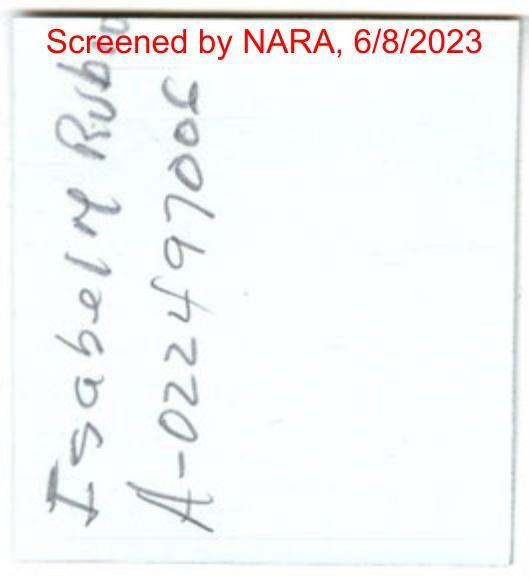 Screened by NARA, 6/8/2023
Isabel M
A-022497006